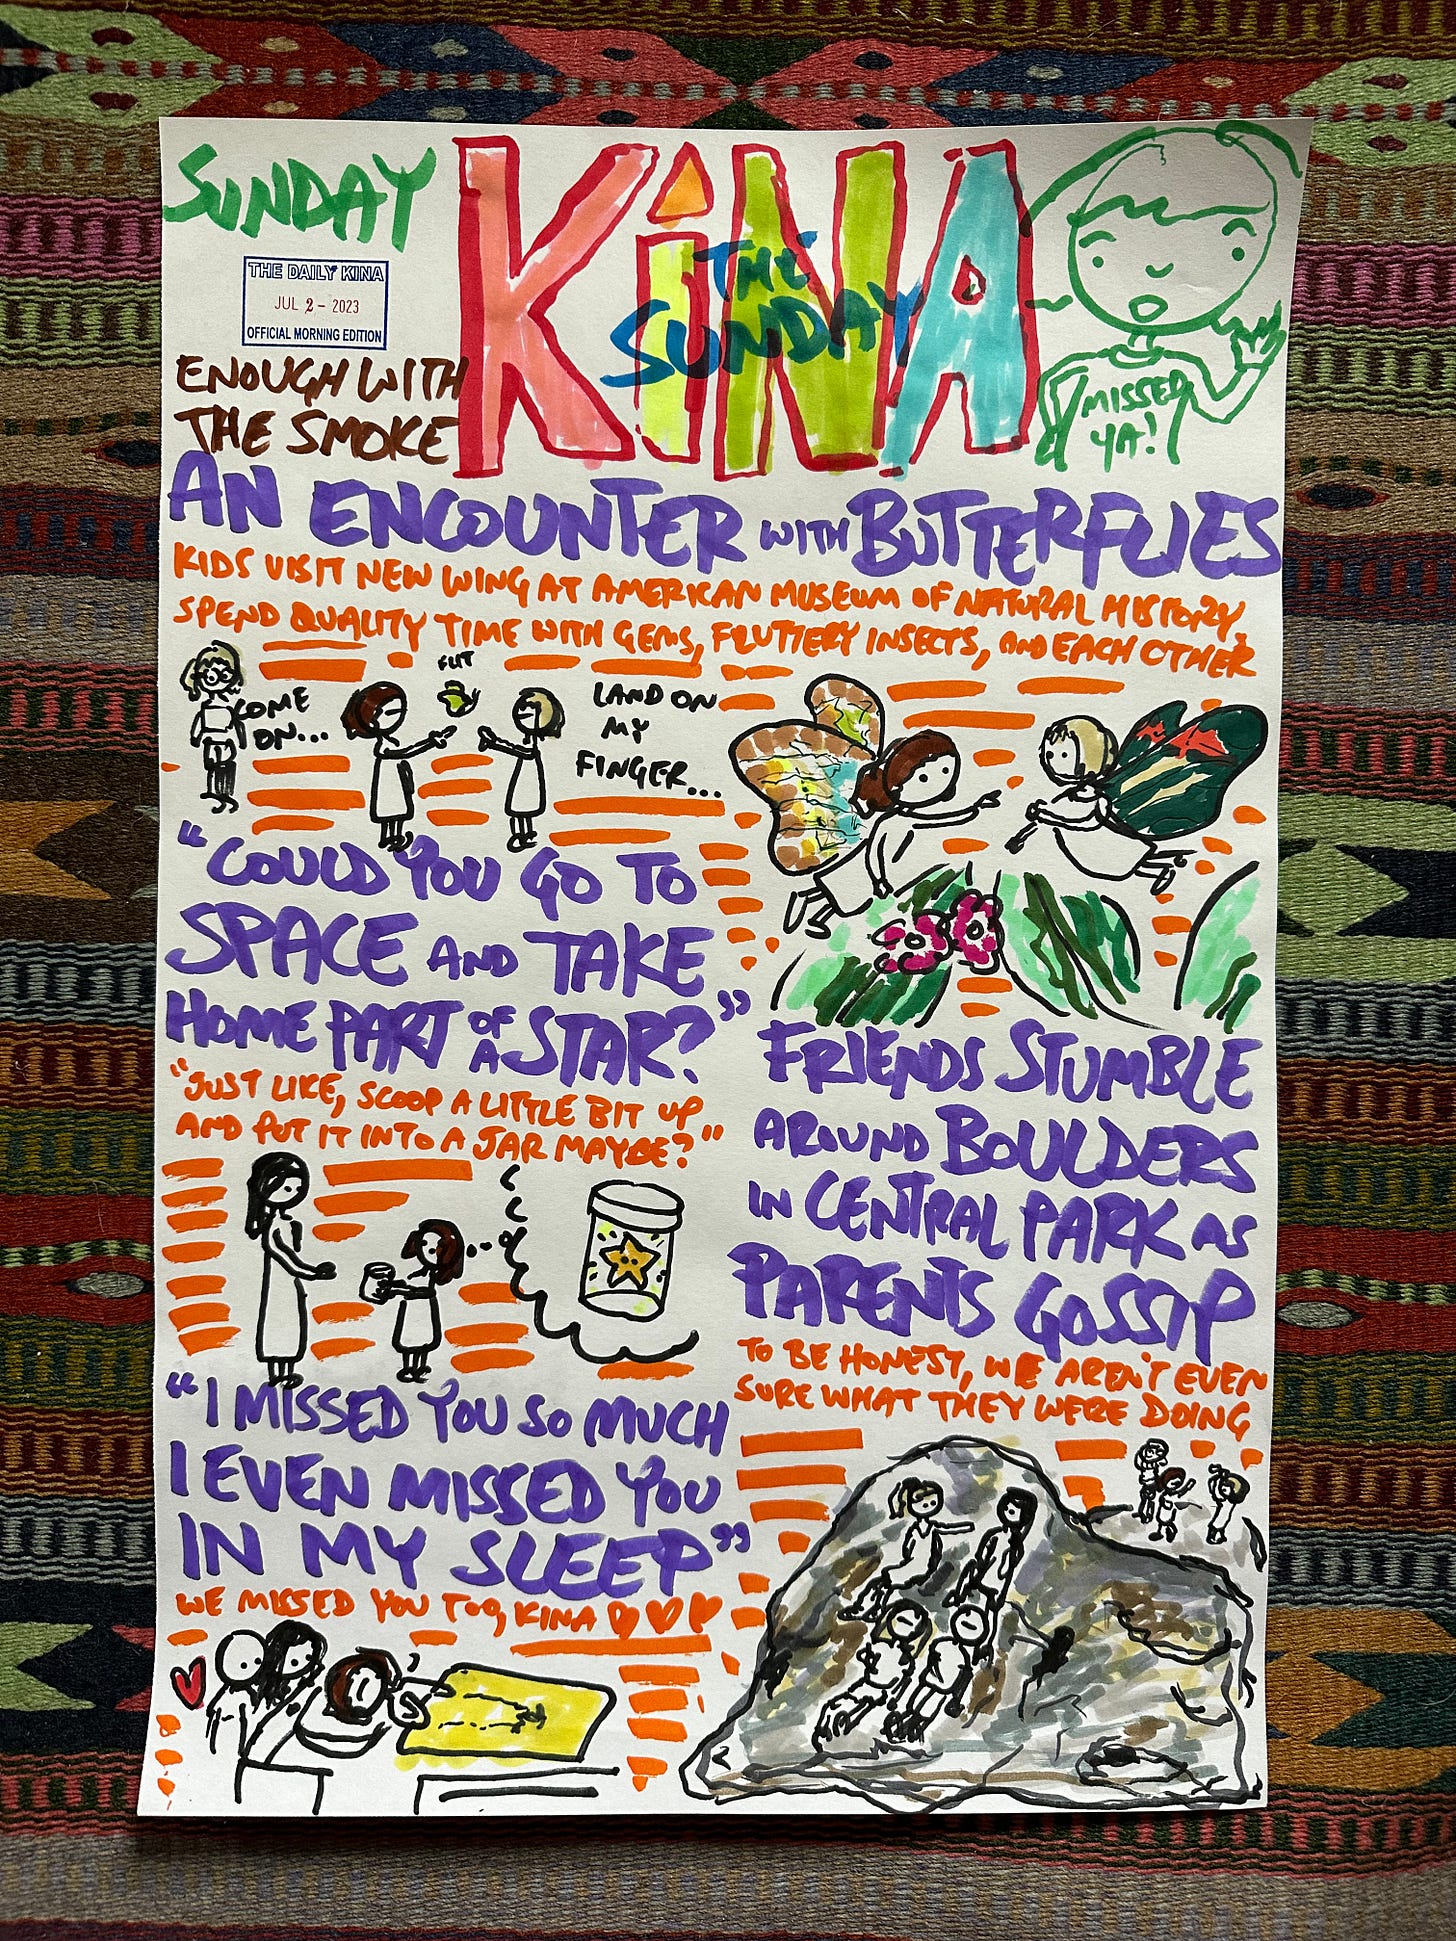 SUNDAY
KiNA
THE
SUNDAY
THE DAILY KINA
JUL 2 - 2023
OFFICIAL MORNING EDITION
ENOUGH WITH
THE SMOKE
MISSED
YA!
AN ENCOUNTER WITH BUTTERFLIES
KIDS VISIT NEW WING AT AMERICAN MUSEUM OF NATURAL HISTORY,
SPEND QUALITY TIME WITH GEMS, FLUTTERY INSECTS, AND EACH OTHER
COME
ON...
FLIT
LAND ON
MY
FINGER...
"COULD YOU GO TO
SPACE AND TAKE
HOME PART OF A STAR?"
"JUST LIKE, SCOOP A LITTLE BIT UP
AND PUT IT INTO A JAR MAYBE?"
"I MISSED YOU SO MUCH
I EVEN MISSED YOU
IN MY SLEEP"
WE MISSED YOU TOO, KINA
FRIENDS STUMBLE
AROUND BOULDERS
IN CENTRAL PARK AS
PARENTS GOSSIP
TO BE HONEST, WE AREN'T EVEN
SURE WHAT THEY WERE DOING